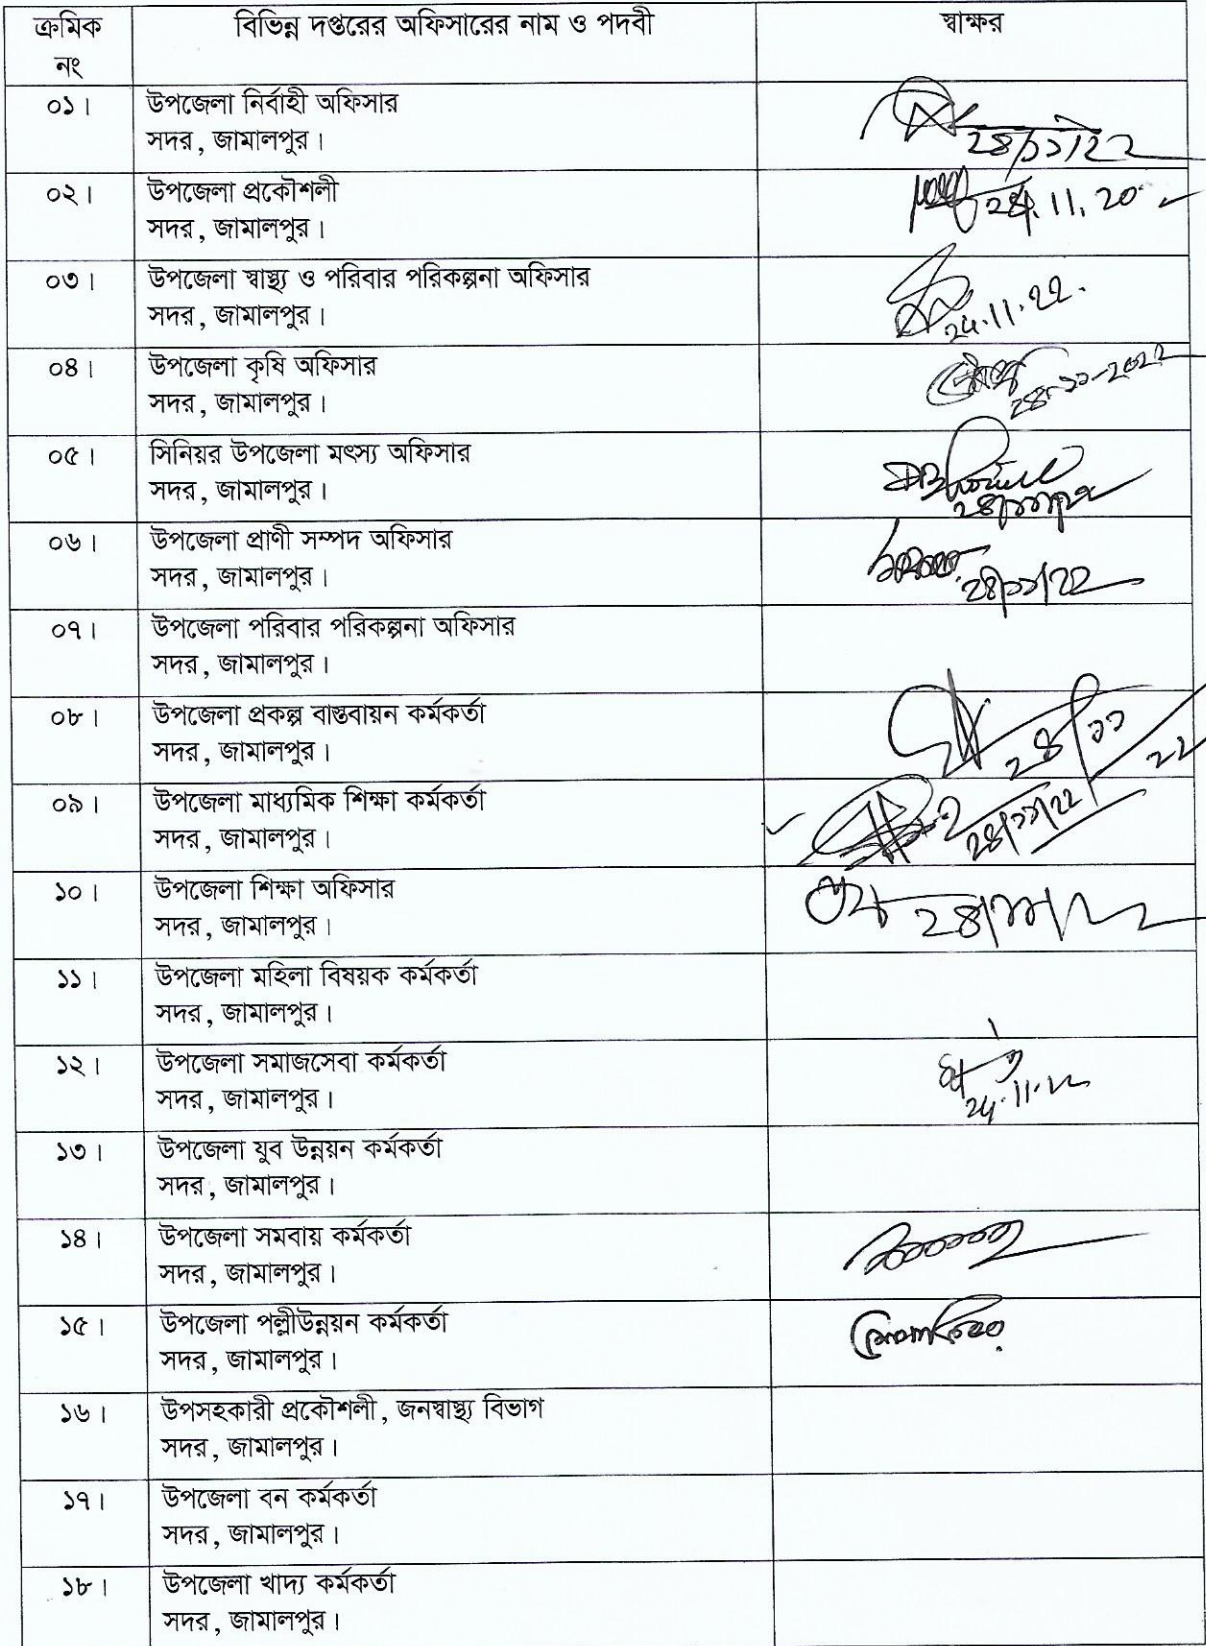 ক্রমিক নং বিভিন্ন দপ্তরের অফিসারের নাম ও পদবী স্বাক্ষর
০১। উপজেলা নির্বাহী অফিসার
সদর, জামালপুর।
২৪/১১/২২
০২। উপজেলা প্রকৌশলী
সদর, জামালপুর।
০৩। উপজেলা স্বাস্থ্য ও পরিবার পরিকল্পনা অফিসার
সদর, জামালপুর।
24.11.22.
০৪। উপজেলা কৃষি অফিসার
সদর, জামালপুর।
২৪-১১-২০২২
০৫। সিনিয়র উপজেলা মৎস্য অফিসার
সদর, জামালপুর।
০৬। উপজেলা প্রাণী সম্পদ অফিসার
সদর, জামালপুর।
২৪/১১/২২
০৭। উপজেলা পরিবার পরিকল্পনা অফিসার
সদর, জামালপুর।
০৮। উপজেলা প্রকল্প বাস্তবায়ন কর্মকর্তা
সদর, জামালপুর।
২৪/১১/২২
০৯। উপজেলা মাধ্যমিক শিক্ষা কর্মকর্তা
সদর, জামালপুর।
২৪/১১/২২
১০। উপজেলা শিক্ষা অফিসার
সদর, জামালপুর।
২৪/১১/২২
১১। উপজেলা মহিলা বিষয়ক কর্মকর্তা
সদর, জামালপুর।
১২। উপজেলা সমাজসেবা কর্মকর্তা
সদর, জামালপুর।
24.11.22
১৩। উপজেলা যুব উন্নয়ন কর্মকর্তা
সদর, জামালপুর।
১৪। উপজেলা সমবায় কর্মকর্তা
সদর, জামালপুর।
১৫। উপজেলা পল্লীউন্নয়ন কর্মকর্তা
সদর, জামালপুর।
১৬। উপসহকারী প্রকৌশলী, জনস্বাস্থ্য বিভাগ
সদর, জামালপুর।
১৭। উপজেলা বন কর্মকর্তা
সদর, জামালপুর।
১৮। উপজেলা খাদ্য কর্মকর্তা
সদর, জামালপুর।